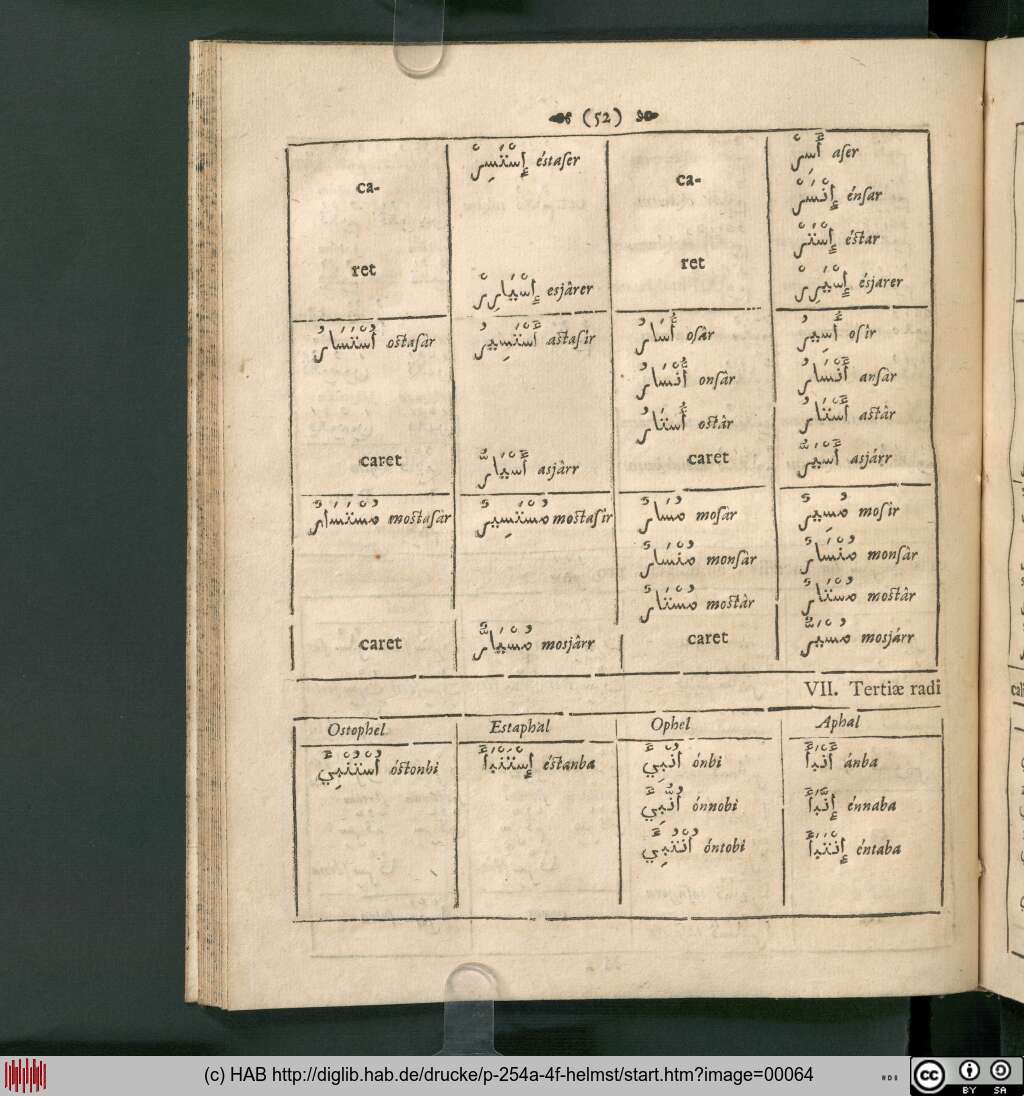 (52)
ca- إِسْتَسِرْ éstaser ca- أَسِرْ aser
إِنْسَرْ énsar
إِسْتَرْ éstar
ret إِسْيَارِرْ esjârer ret إِسْيَرِرْ ésjarer
أُسْتُسَارُ ostasâr أَسْتَسِيرُ astasir أُسَارُ osâr أَسِيرُ osir
أُنْسَارُ onsâr أَنْسَارُ ansâr
أُسْتَارُ ostâr أَسْتَارُ astâr
caret أَسْيَارُّ asjârr caret أَسْيَرُّ asjárr
مُسْتَسَارٌ mostasâr مُسْتَسِيرٌ mostasir مُسَارٌ mosâr مُسِيرٌ mosir
مُنْسَارٌ monsâr مُنْسَارٌ monsâr
مُسْتَارٌ mostâr مُسْتَارٌ mostâr
caret مُسْيَارٌّ mosjârr caret مُسْيَرٌّ mosjárr
VII. Tertiæ radi
Ostophel Estaphal Ophel Aphal
أُسْتُنْبِيَ óstonbi إِسْتَنْبَأَ éstanba أُنْبِيَ ónbi أَنْبَأَ ánba
أُنُّبِيَ ónnobi إِنَّبَأَ énnaba
أُنْتُبِيَ óntobi إِنْتَبَأَ éntaba
(c) HAB http://diglib.hab.de/drucke/p-254a-4f-helmst/start.htm?image=00064
cc BY SA